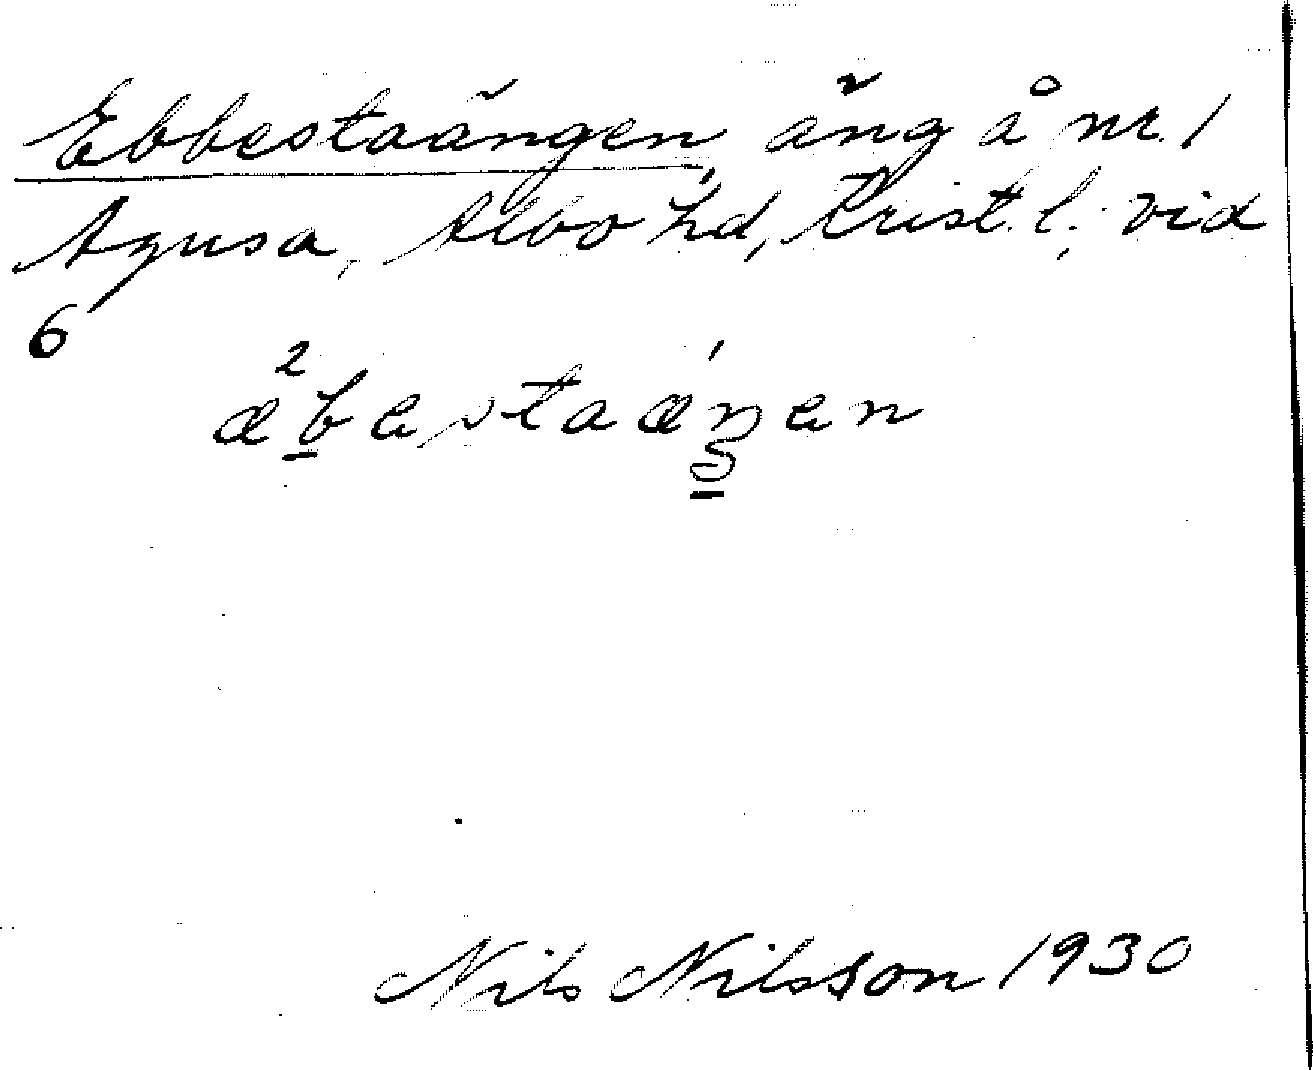 Ebbestaängen, äng å nr. 1
Agusa, Albo hd, Krist. l.; vid
6
æ²bestaæŋ́en
Nils Nilsson 1930